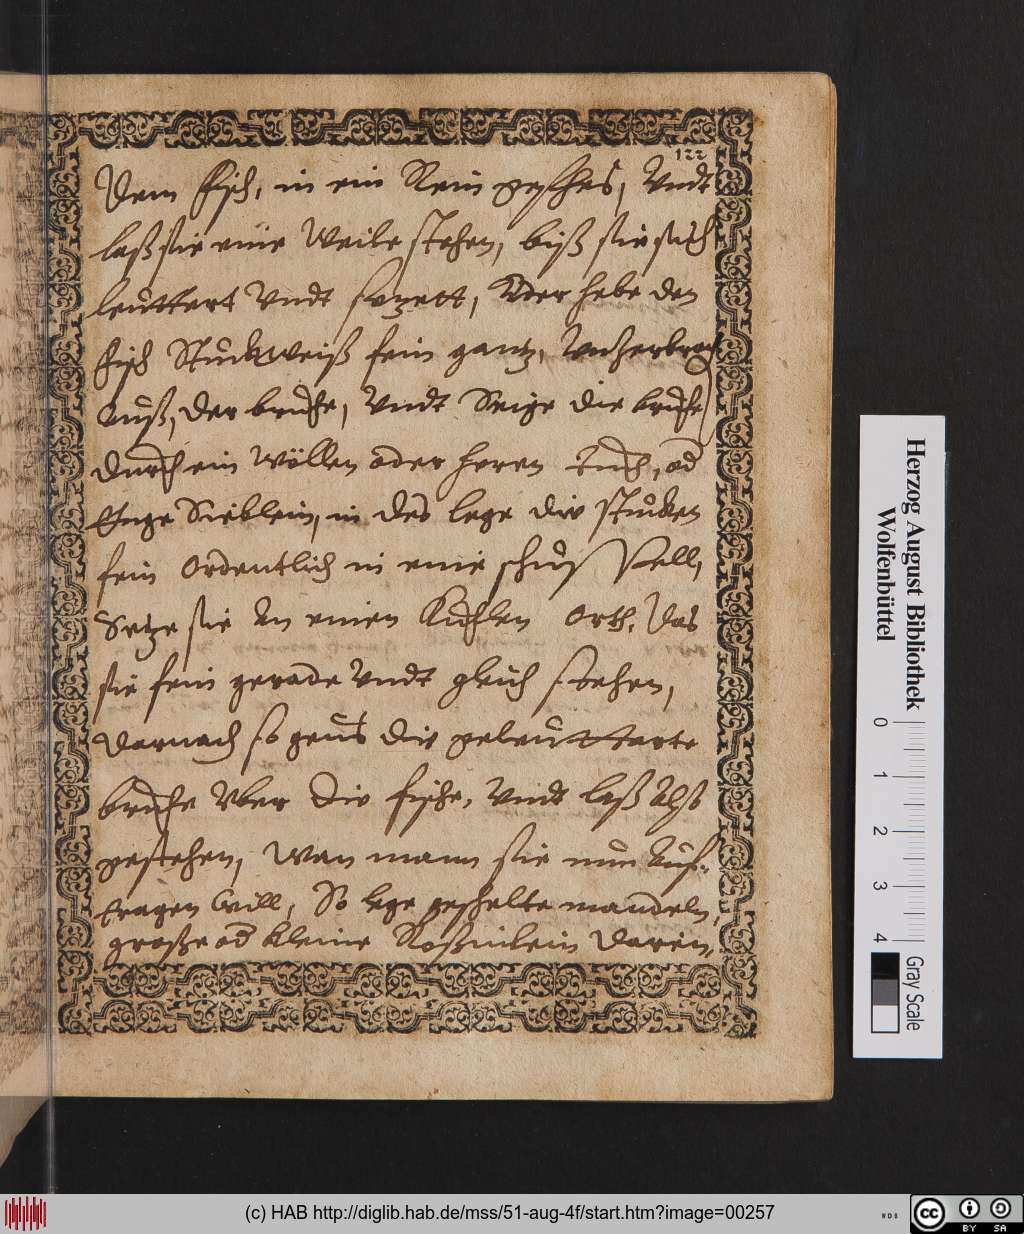 122
Dem fisch, in ein Rein geschir, Vndt
laß sie eine Weile stehen, biß sie sich
leuttert Vndt setzett, Oder hebe den
fisch Stuckweiß fein gantz, Vnzerbroch
auß, der bruhe, Vndt Seige die bruhe
durch ein Wöllen oder Heren Tuch, od
Enge Sieblein, in des lege die stucken
fein Ordentlich in eine schüssell,
Setze sie An einen Kuhlen Orth, Das
sie fein gerade Vndt gleich stehen,
Darnach so geus die geleutterte
bruhe Vber die fische, Vndt laß Also
gestehen, Wan mann sie nun Auf-
tragen Will, So lege geschelte mandeln,
große od kleine Roßinlein darein,
Herzog August Bibliothek
Wolfenbüttel
0 1 2 3 4
Gray Scale
(c) HAB http://diglib.hab.de/mss/51-aug-4f/start.htm?image=00257
WDB
cc BY SA